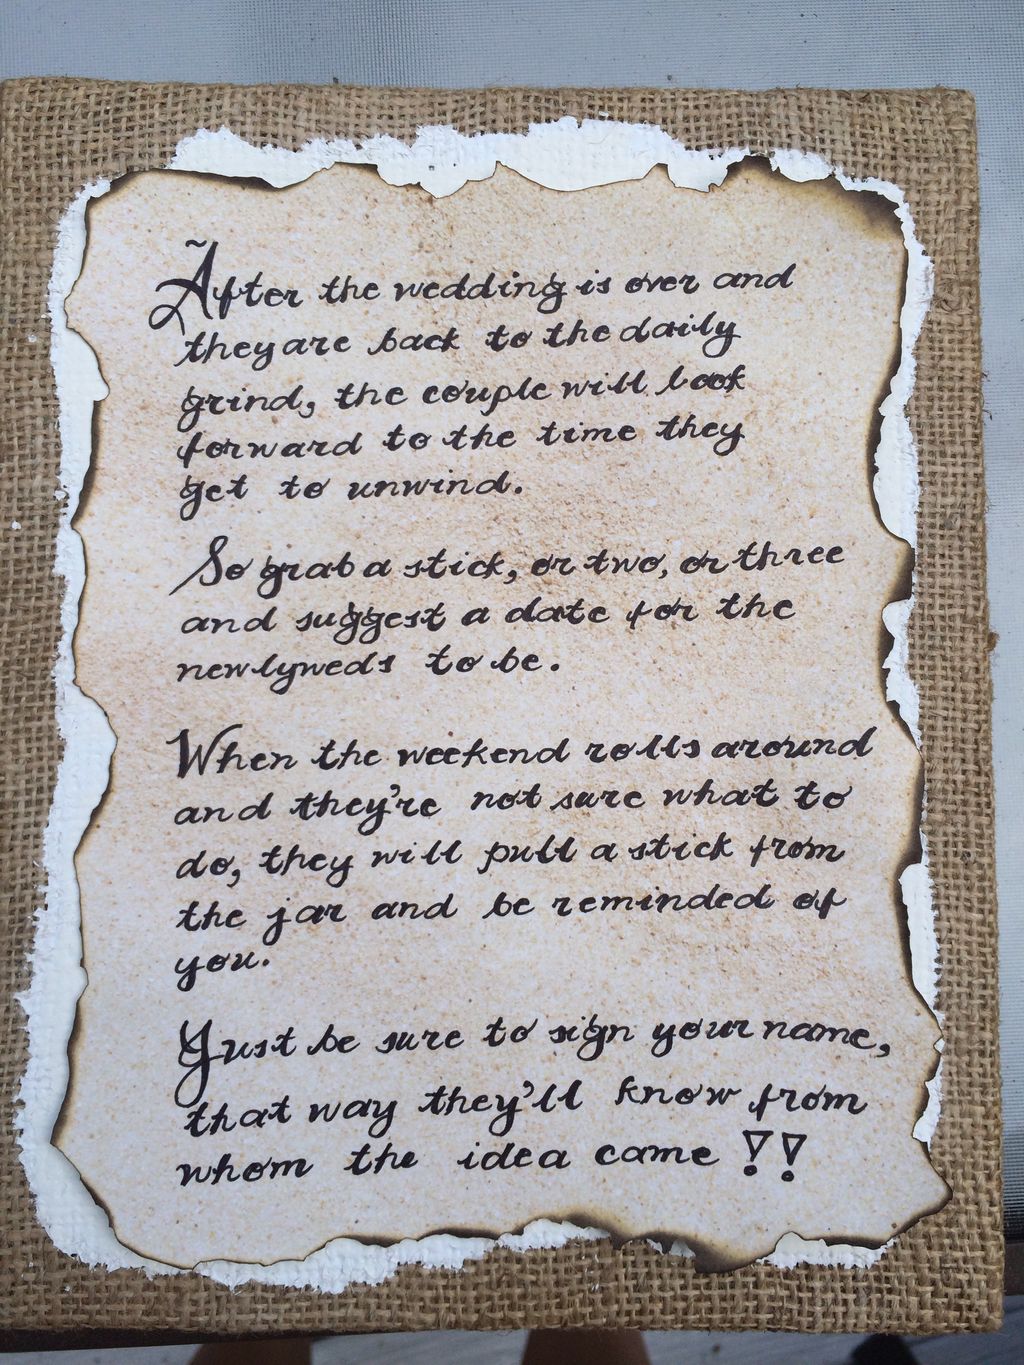 After the wedding is over and
they are back to the daily
grind, the couple will look
forward to the time they
get to unwind.
So grab a stick, or two, or three
and suggest a date for the
newlyweds to be.
When the weekend rolls around
and they're not sure what to
do, they will pull a stick from
the jar and be reminded of
you.
Just be sure to sign your name,
that way they'll know from
whom the idea came !!